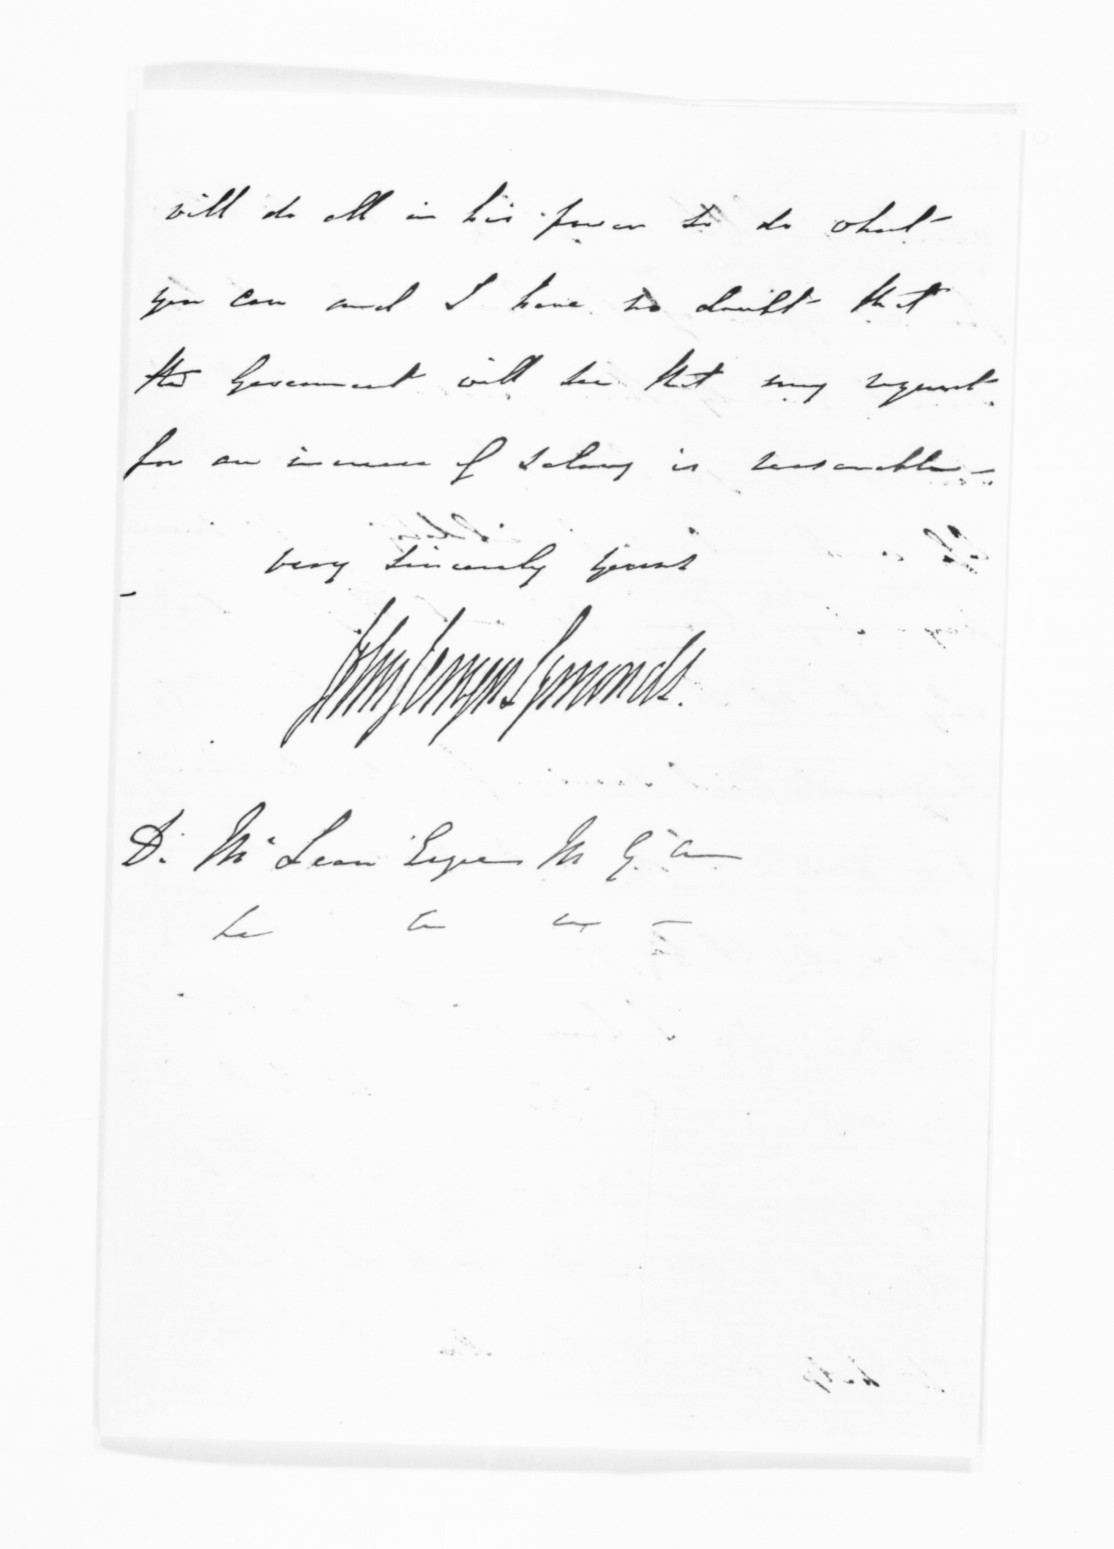 will do all in his power to do what
you can and I have no doubt that
the Government will see that my request
for an increase of salary is reasonable—
very sincerely yours
John Jermyn Symonds.
D. McLean Esquire M G A
&c &c &c